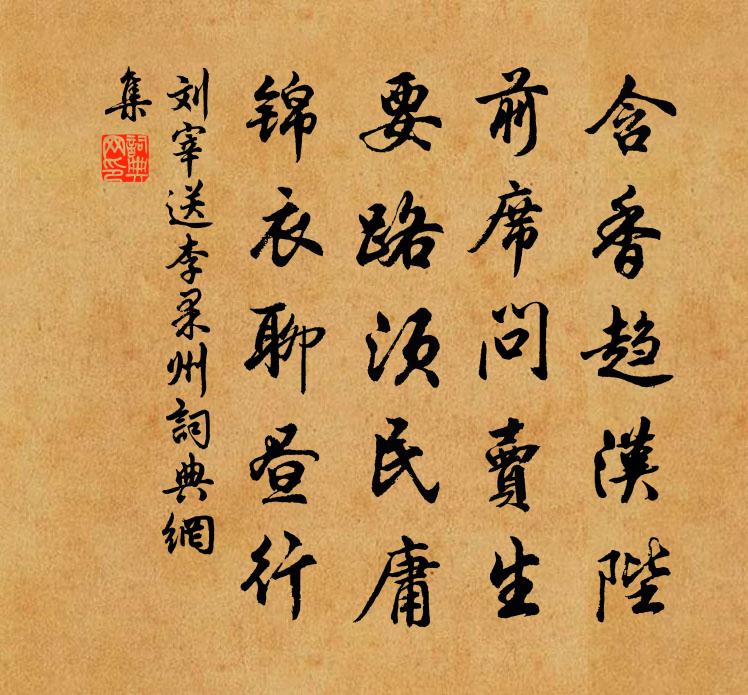 含香趋漢陛
前席問賣生
要路须民庸
锦衣聊昼行
刘宰送李果州詞典網
集
詞典網印